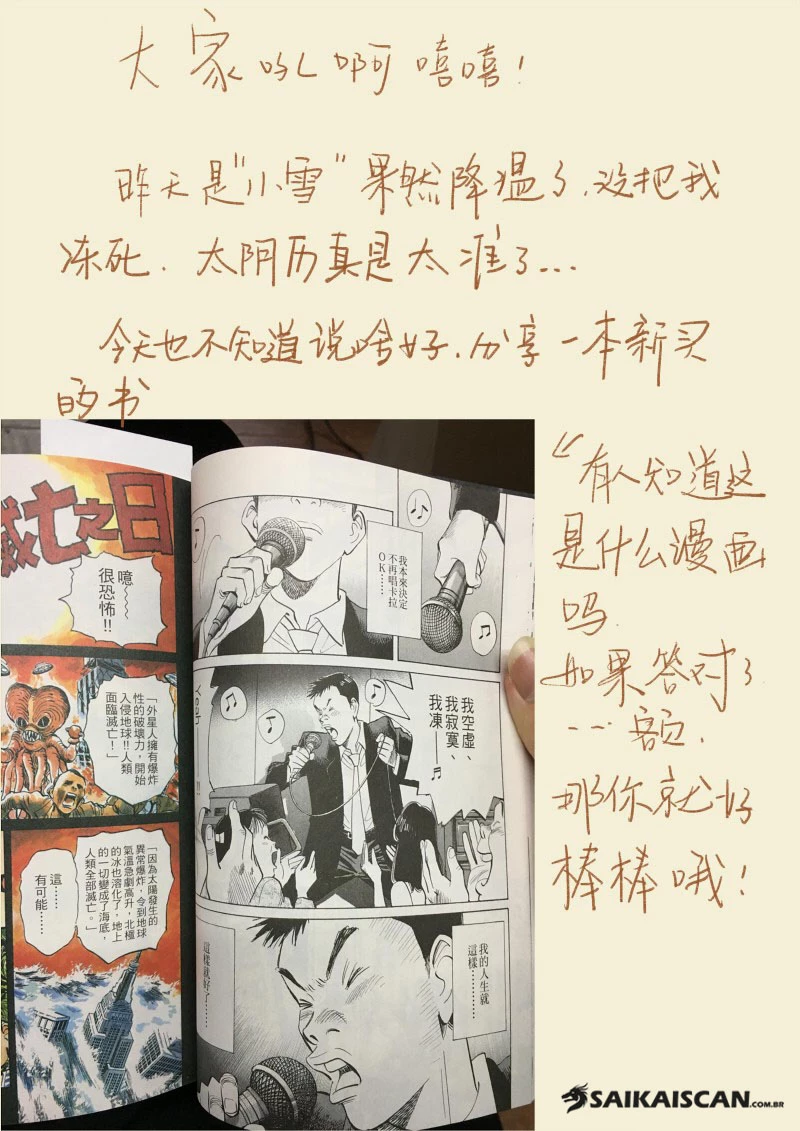 大家吼啊嘻嘻!
昨天是"小雪"果然降温了,没把我
冻死.太阴历真是太准了...
今天也不知道说啥好.分享一本新买
的书
有人知道这
是什么漫画
吗.
如果答对了
...额,
那你就好
棒棒哦!
滅亡之日
噫~~~
很恐怖!!
「外星人擁有爆炸
性的破壞力,開始
入侵地球!!人類
面臨滅亡!」
「因為太陽發生的
異常爆炸,令到地球
氣溫急劇高升,北極
的冰也溶化了,地上
的一切變成了海底,
人類全部滅亡。」
這……
有可能……
我本來決定
不再唱卡拉
OK……
我空虛、
我寂寞、
我凍—
Yeah
!!
我的人生就
這樣………
這樣就好了………
SAIKAISCAN.COM.BR